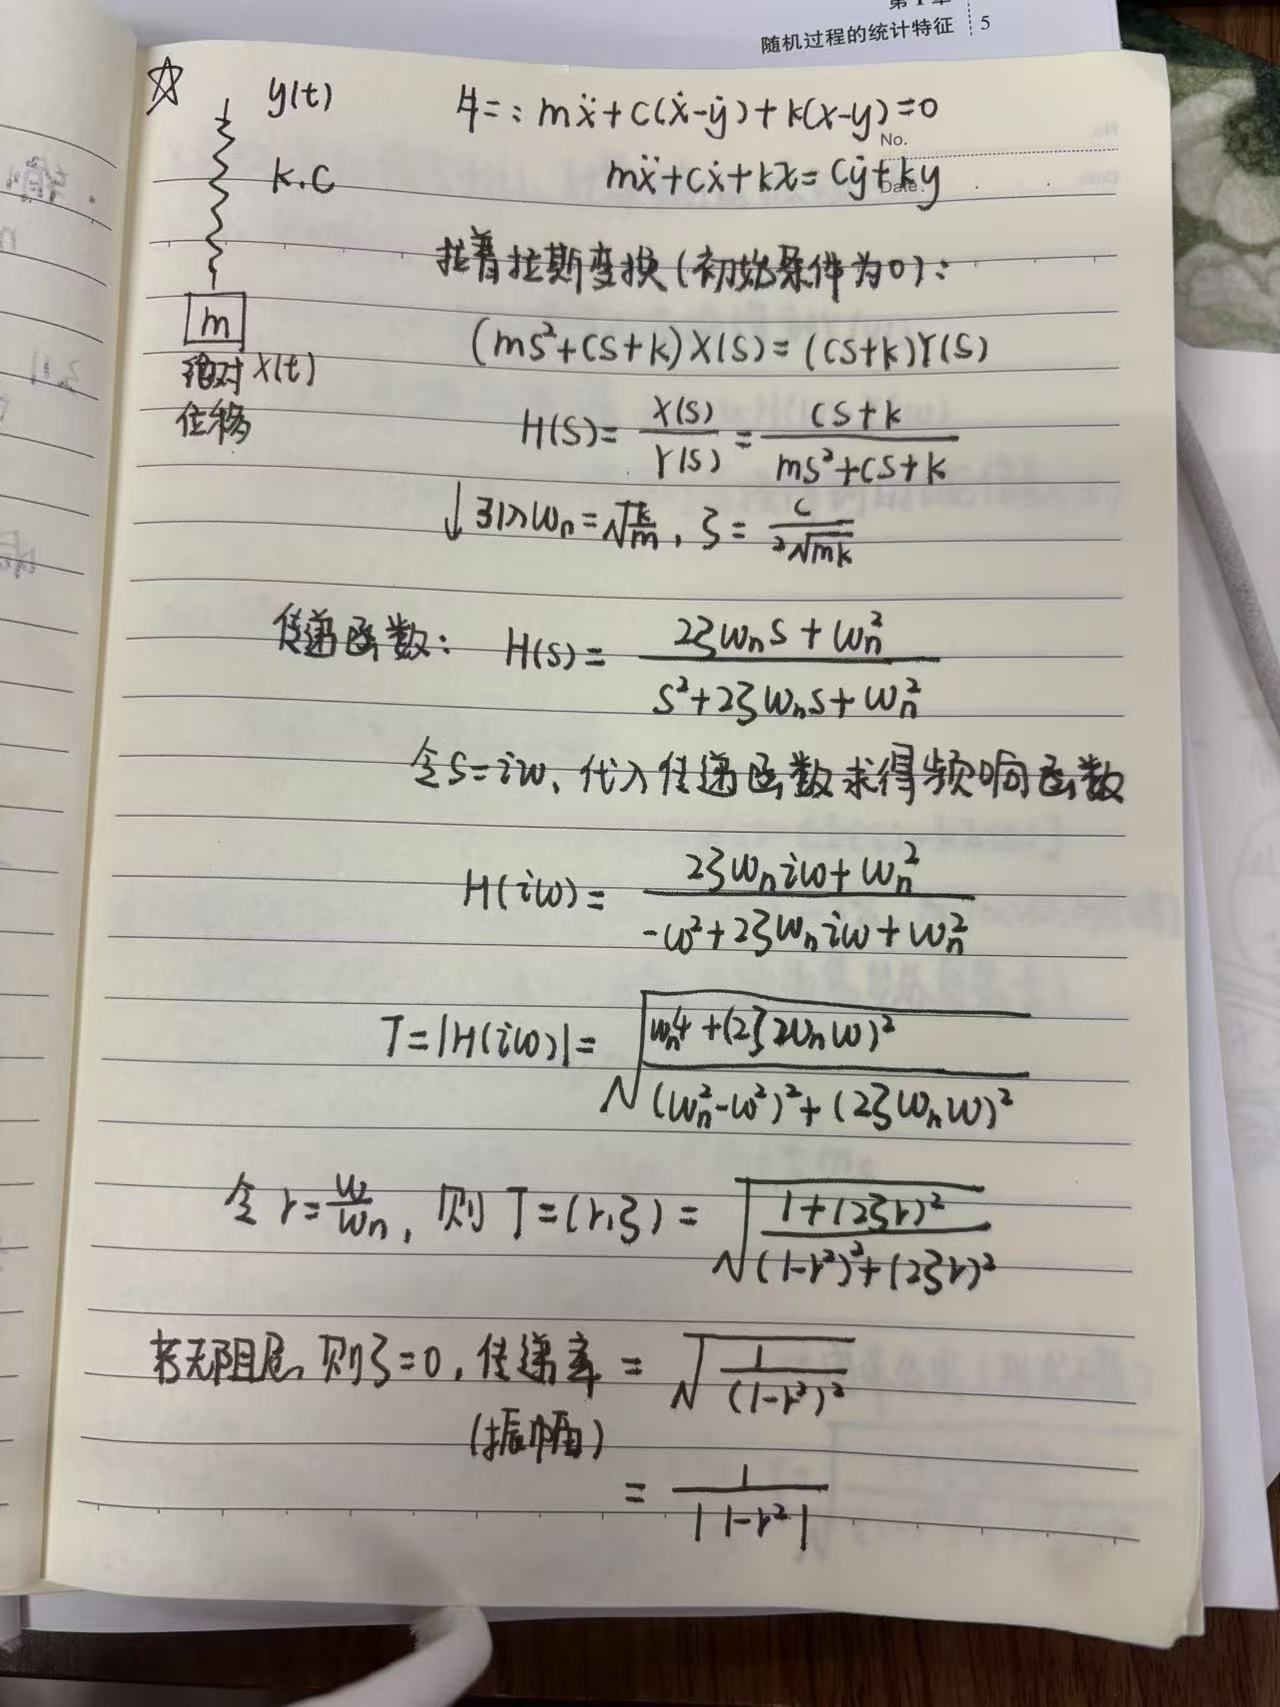 第1章
随机过程的统计特征 5
No.
Date.
☆ y(t) 牛二: mẍ+c(ẋ-ẏ)+k(x-y)=0
k.c mẍ+cẋ+kx=cẏ+ky
拉普拉斯变换(初始条件为0):
m
(ms²+cs+k)X(s)=(cs+k)Y(s)
绝对 x(t)
位移
H(s)= X(s)/Y(s) = (cs+k)/(ms²+cs+k)
↓引入ωn=√(k/m), ζ= c/(2√mk)
传递函数: H(s)= (2ζωns+ωn²)/(s²+2ζωns+ωn²)
令s=iω, 代入传递函数求得频响函数
H(iω)= (2ζωniω+ωn²)/(-ω²+2ζωniω+ωn²)
T=|H(iω)|= √((ωn⁴+(2ζ2ωnω)²)/((ωn²-ω²)²+(2ζωnω)²))
令 r=ω/ωn, 则 T=(r,ζ)= √((1+(2ζr)²)/((1-r²)²+(2ζr)²))
若无阻尼, 则ζ=0, 传递率 = √(1/(1-r²)²)
(振幅)
= 1/|1-r²|